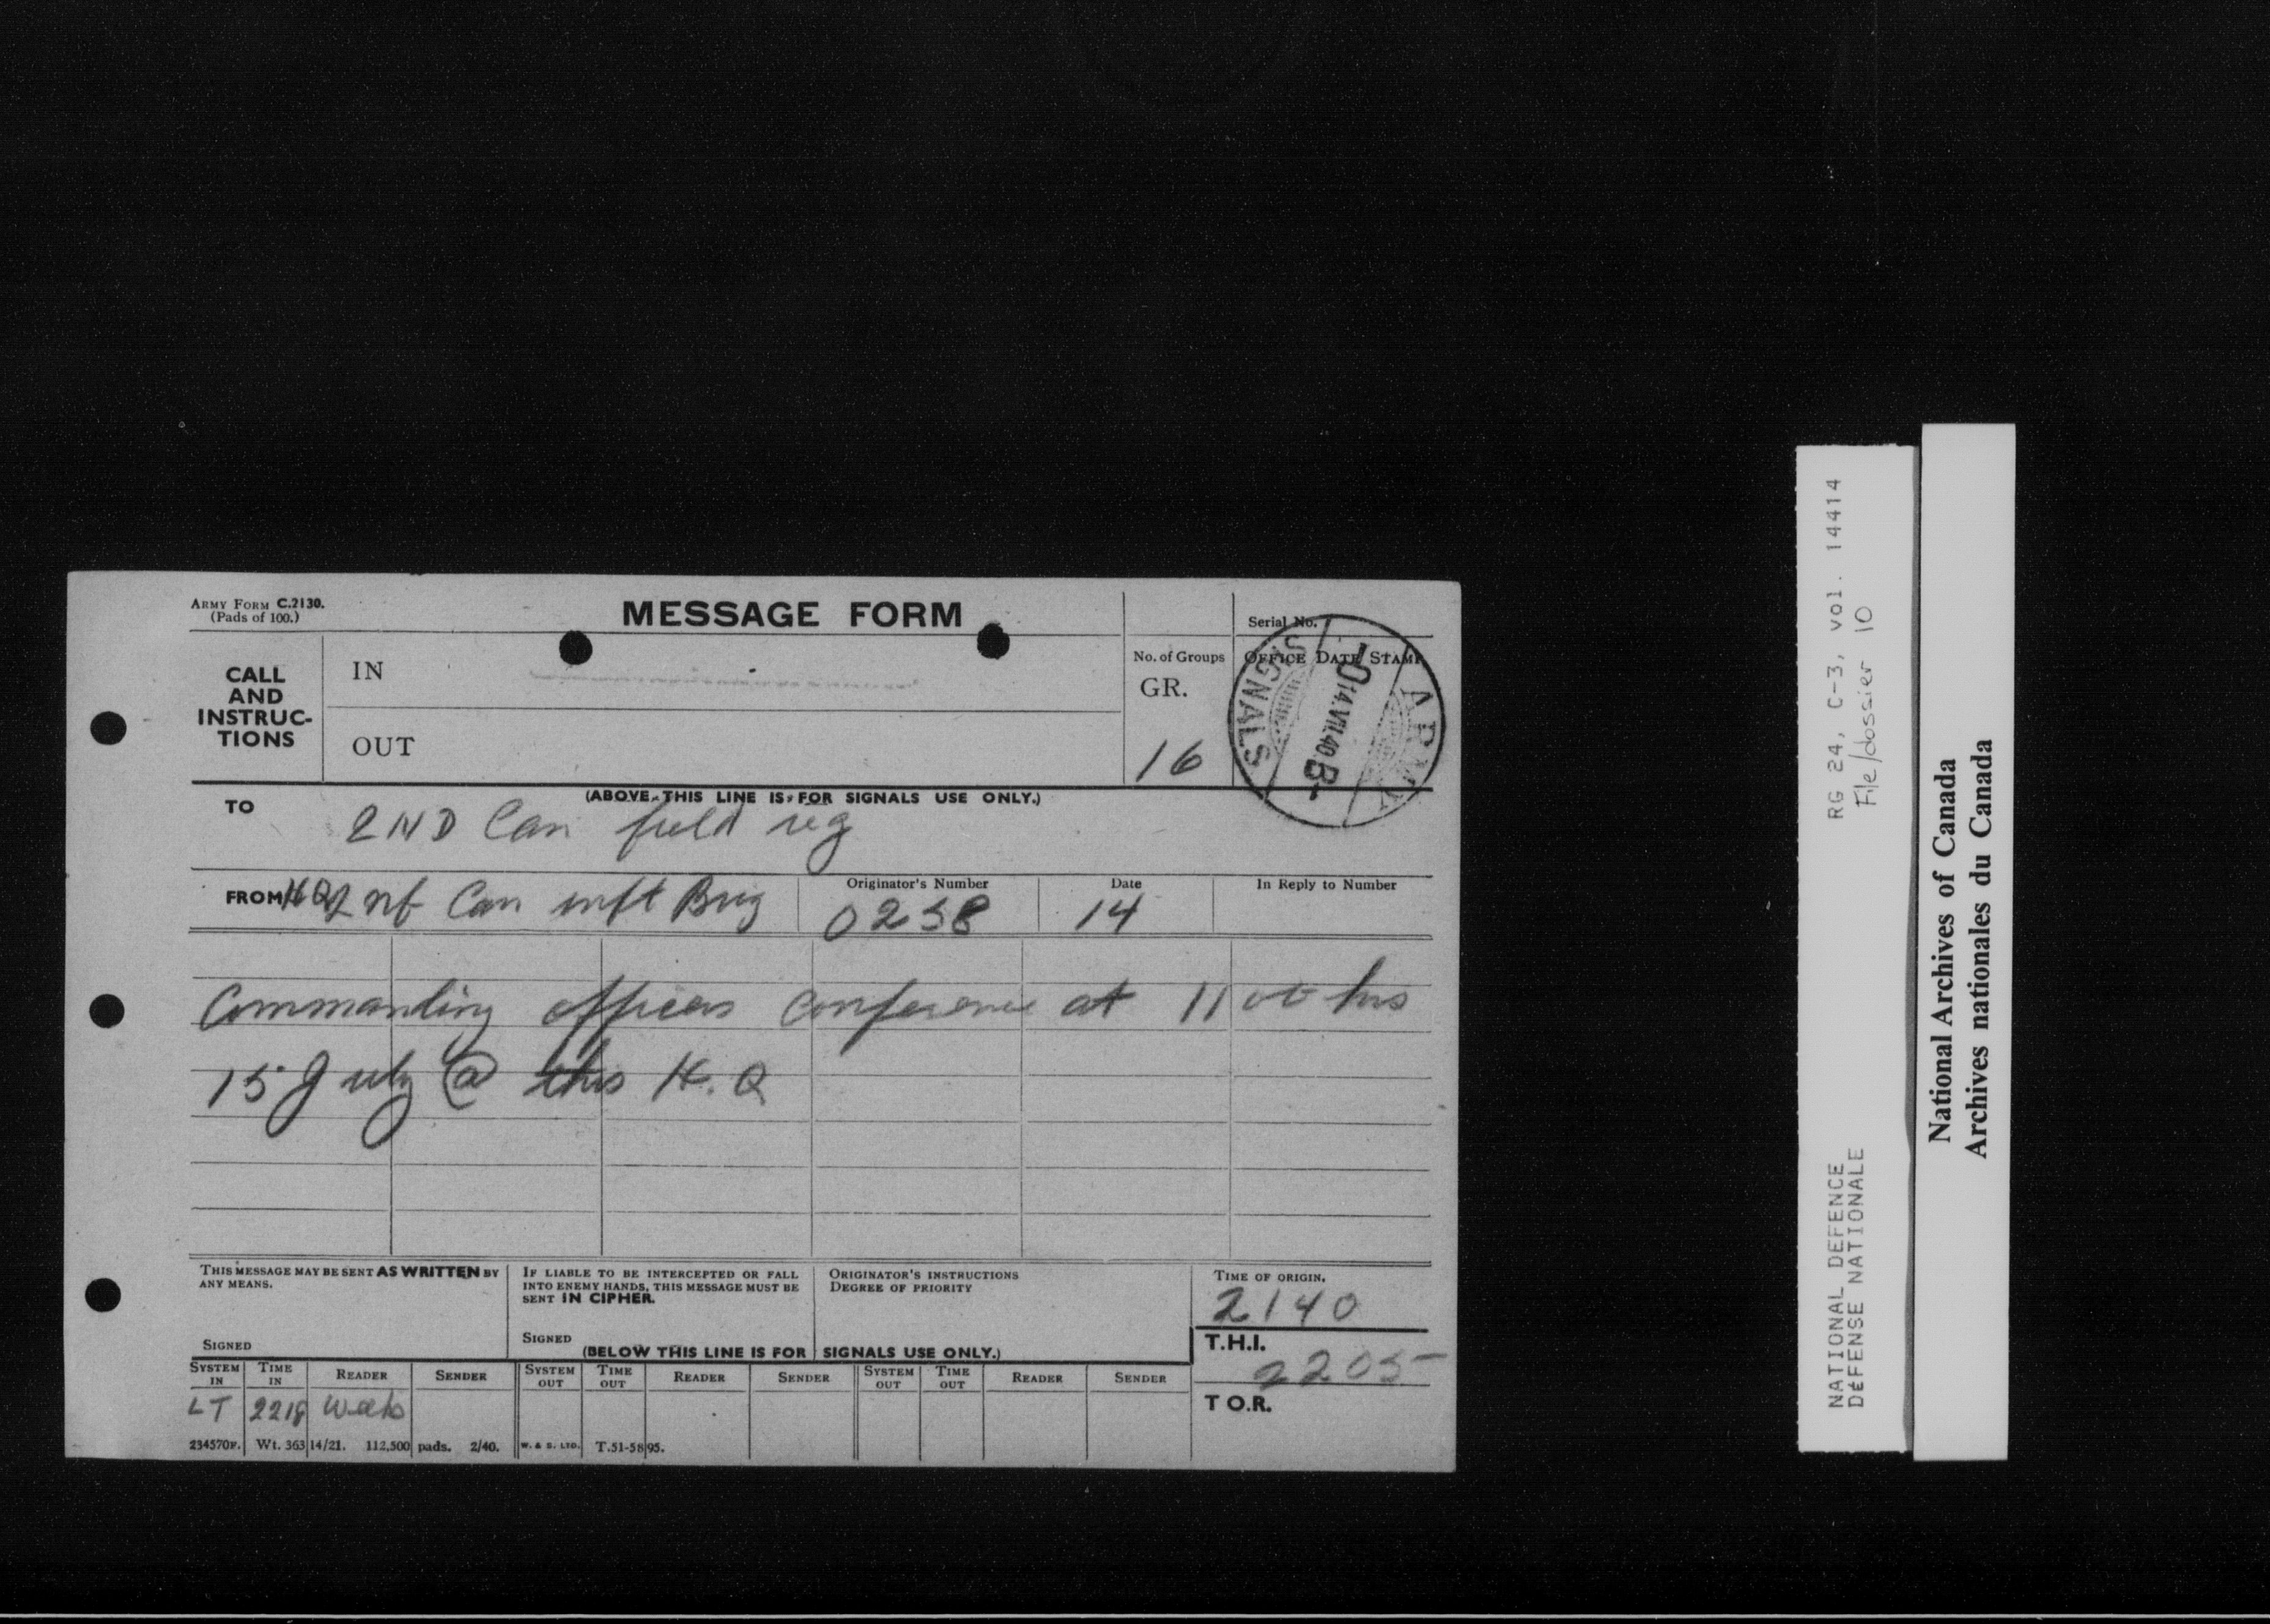 ARMY FORM C.2130.
(Pads of 100.)
MESSAGE FORM
Serial No.
CALL
AND
INSTRUC-
TIONS
IN
OUT
No. of Groups
GR.
16
OFFICE DATE STAMP
ARMY SIGNALS
14.VII.40
(ABOVE THIS LINE IS FOR SIGNALS USE ONLY.)
TO 2ND Can field reg
FROM HQ Can inft Brig
Originator's Number
0258
Date
14
In Reply to Number
Commanding officers conference at 1100 hrs
15 July @ this H.Q
THIS MESSAGE MAY BE SENT AS WRITTEN BY
ANY MEANS.
SIGNED
IF LIABLE TO BE INTERCEPTED OR FALL
INTO ENEMY HANDS, THIS MESSAGE MUST BE
SENT IN CIPHER.
SIGNED
ORIGINATOR'S INSTRUCTIONS
DEGREE OF PRIORITY
TIME OF ORIGIN.
2140
T.H.I.
2205
T.O.R.
(BELOW THIS LINE IS FOR SIGNALS USE ONLY.)
SYSTEM IN TIME IN READER SENDER SYSTEM OUT TIME OUT READER SENDER SYSTEM OUT TIME OUT READER SENDER
LT 2218
234570F. Wt. 36314/21. 112,500 pads. 2/40. W. & S. LTD. T.51-5895.
RG 24, C-3, vol. 14414
File/dossier 10
NATIONAL DEFENCE
DÉFENSE NATIONALE
National Archives of Canada
Archives nationales du Canada